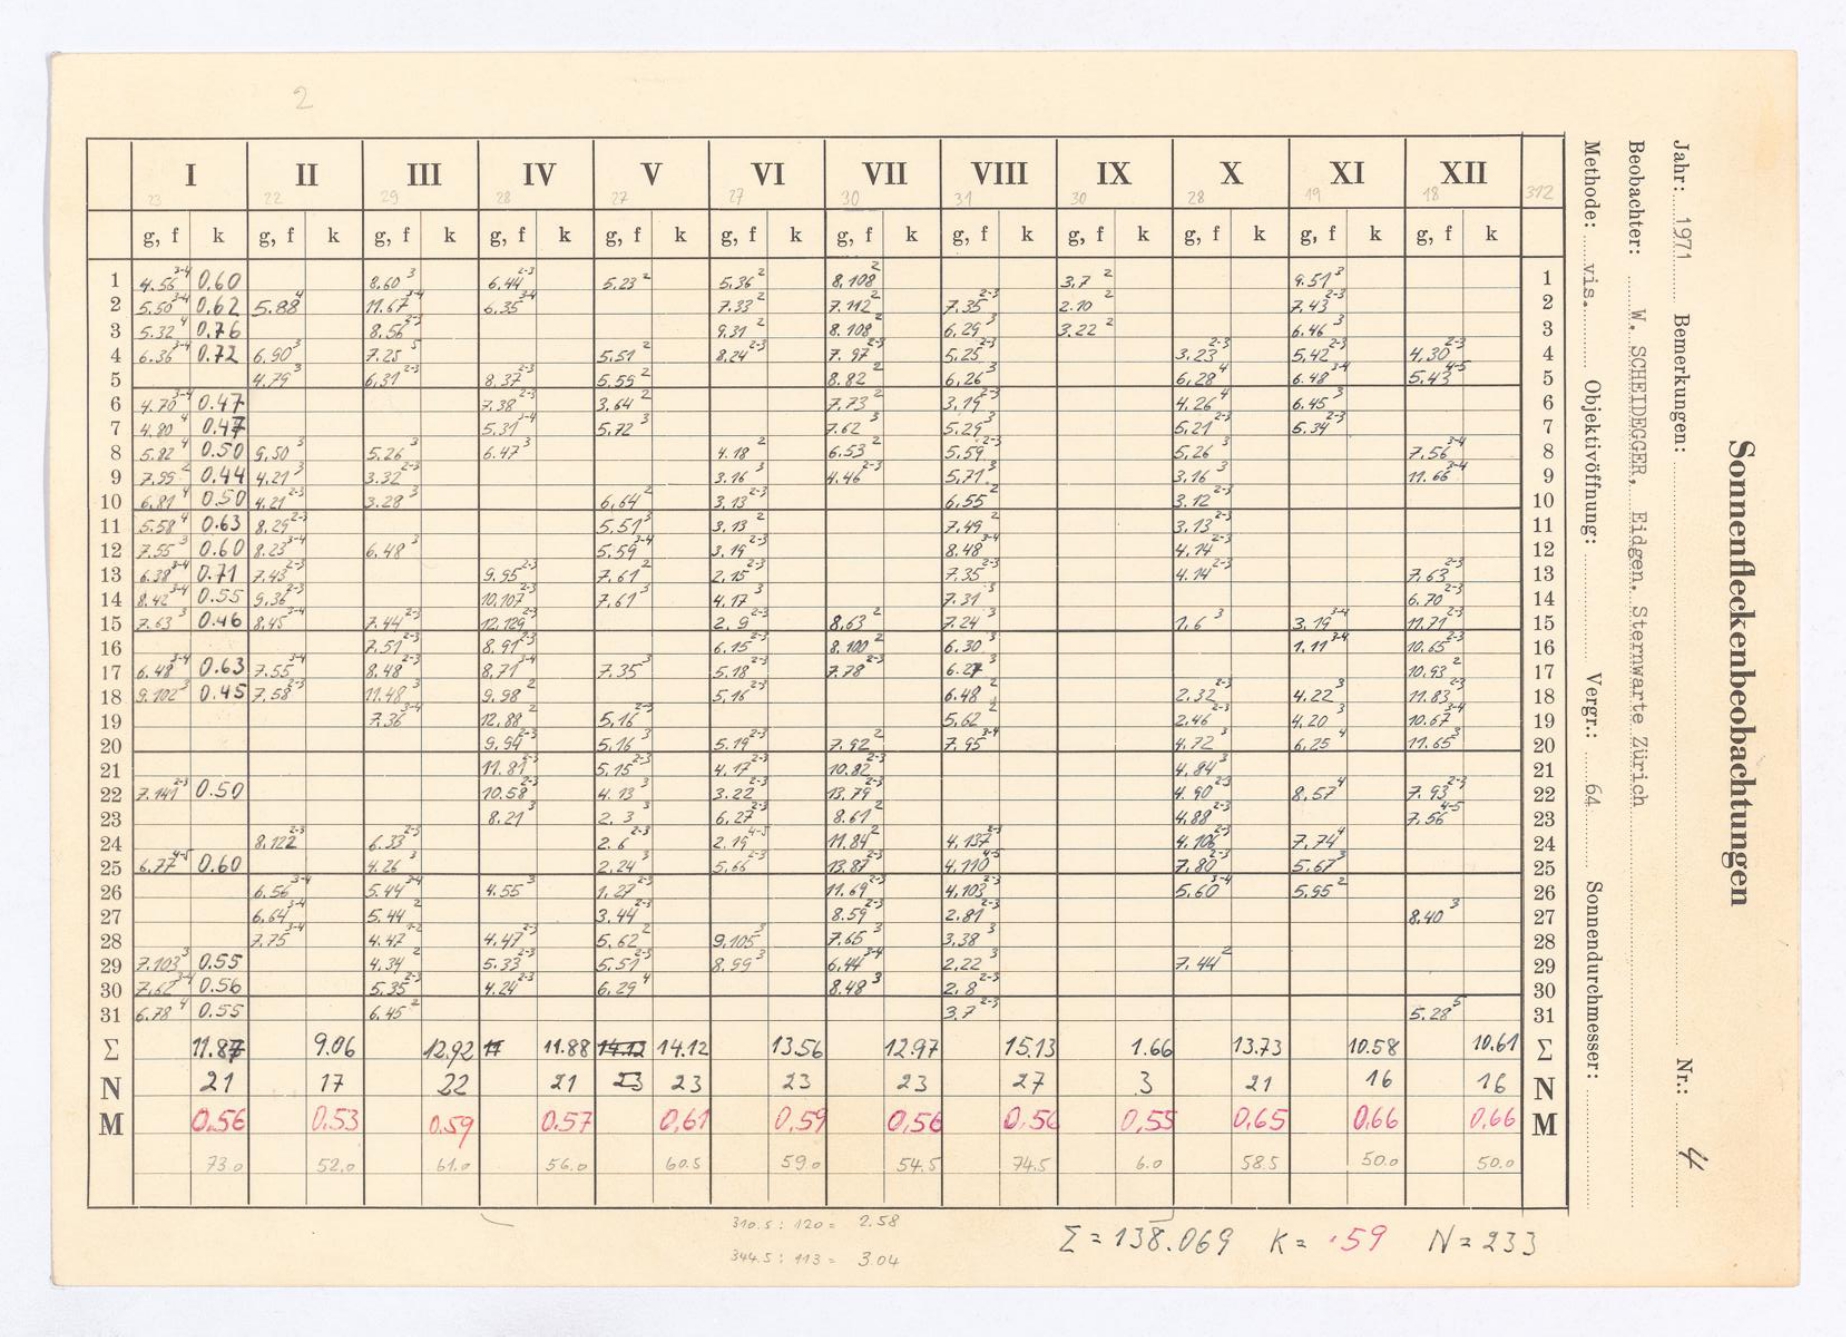 2
I II III IV V VI VII VIII IX X XI XII
23 22 29 28 27 27 30 31 30 28 19 18 312
g, f k g, f k g, f k g, f k g, f k g, f k g, f k g, f k g, f k g, f k g, f k g, f k
1 4.56 3-4 0.60 8.60 3 6.44 2-3 5.23 2 5.36 2 8.108 2 3.7 2 9.51 3 1
2 5.50 3-4 0.62 5.88 4 11.67 3-4 6.35 3-4 7.33 2 7.112 2 7.35 2-3 2.10 2 7.43 2-3 2
3 5.32 4 0.76 8.56 2-3 9.31 2 8.108 2 6.29 3 3.22 2 6.46 3 3
4 6.36 3-4 0.72 6.90 3 7.25 5 5.51 2 8.24 2-3 7.97 2-3 5.25 2-3 3.23 2-3 5.42 2-3 4.30 2-3 4
5 4.79 3 6.31 2-3 8.37 2-3 5.59 2 8.82 2 6.26 3 6.28 4 6.48 3-4 5.43 4-5 5
6 4.70 3-4 0.47 7.38 2-3 3.64 2 7.73 2 3.19 2-3 4.26 4 6.45 3 6
7 4.80 4 0.47 5.31 3-4 5.72 3 7.62 3 5.29 3 5.21 2-3 6.34 2-3 7
8 5.82 4 0.50 9.50 3 5.26 3 6.47 3 4.18 2 6.53 2 5.59 2-3 5.26 3 7.56 3-4 8
9 7.99 2 0.44 4.21 3 3.32 2-3 3.16 3 4.46 2-3 5.71 3 3.16 3 11.66 3-4 9
10 6.81 4 0.50 4.21 2-3 3.28 3 6.64 2 3.13 2-3 6.55 2 3.12 2-3 10
11 5.58 4 0.63 8.29 2-3 5.51 3 3.13 2 7.49 2 3.13 2-3 11
12 7.55 3 0.60 8.23 3-4 6.48 3 5.59 3-4 3.19 2-3 8.48 3-4 4.14 2-3 12
13 6.38 3-4 0.71 7.43 2-3 9.95 2-3 7.61 2 2.15 2-3 7.35 2-3 4.14 2-3 7.63 2-3 13
14 8.42 3-4 0.55 9.36 2-3 10.107 2-3 7.61 3 4.17 3 7.31 3 6.70 2-3 14
15 7.63 3 0.46 8.45 3-4 7.44 2-3 12.129 2-3 2.9 2-3 8.63 2 7.24 3 1.6 3 3.19 3-4 11.71 2-3 15
16 7.51 2-3 8.91 2-3 6.15 2-3 8.100 2 6.30 3 1.11 3-4 10.65 2-3 16
17 6.48 3-4 0.63 7.55 3-4 8.48 2-3 8.71 3-4 7.35 3 5.18 2-3 7.78 2-3 6.27 3 10.93 2 17
18 9.102 3 0.45 7.58 2-3 11.48 3 9.98 2 5.16 2-3 6.48 2 2.32 2-3 4.22 3 11.83 2-3 18
19 7.36 3-4 12.88 2 5.16 2-3 5.62 2 2.46 2-3 4.20 3 10.67 3-4 19
20 9.94 2-3 5.16 3 5.19 2-3 7.92 2 7.95 3-4 4.72 3 6.25 4 11.65 3 20
21 11.81 2-3 5.15 2-3 4.17 2-3 10.82 2-3 4.84 3 21
22 7.141 2-3 0.50 10.58 2-3 4.13 3 3.22 2-3 13.79 2-3 4.90 2-3 8.57 4 7.93 2-3 22
23 8.21 3 2.3 3 6.27 2-3 8.61 2 4.88 2-3 7.56 4-5 23
24 8.122 2-3 6.33 2-3 2.6 2-3 2.19 4-5 11.84 2 4.137 2-3 4.106 2-3 7.74 4 24
25 6.77 4-5 0.60 4.26 3 2.24 3 5.66 2-3 13.87 2-3 4.110 4-5 7.80 2-3 5.67 3 25
26 6.56 3-4 5.44 3-4 4.55 3 1.27 2-3 11.69 2-3 4.103 2-3 5.60 3-4 5.95 2 26
27 6.64 3-4 5.44 2 3.44 2-3 8.59 2-3 2.81 2-3 8.40 3 27
28 7.75 3-4 4.47 1-2 4.47 2-3 5.62 2 9.105 3 7.65 3 3.38 3 28
29 7.103 3 0.55 4.34 2 5.33 2-3 5.51 2-3 8.99 3 6.44 3-4 2.22 3 7.44 2 29
30 7.62 3-4 0.56 5.35 2-3 4.24 2-3 6.29 4 8.48 3 2.8 2-3 30
31 6.78 4 0.55 6.45 2 3.7 2-3 5.28 5 31
Σ 11.87 9.06 12.92 11 11.88 14.12 14.12 13.56 12.97 15.13 1.66 13.73 10.58 10.61 Σ
N 21 17 22 21 23 23 23 23 27 3 21 16 16 N
M 0.56 0.53 0.59 0.57 0.61 0.59 0.56 0.56 0.55 0.65 0.66 0.66 M
73.0 52.0 61.0 56.0 60.5 59.0 54.5 74.5 6.0 58.5 50.0 50.0
310.5 : 120 = 2.58
344.5 : 113 = 3.04
Σ = 138.069 K = .59 N = 233
Sonnenfleckenbeobachtungen
Jahr: 1971 Bemerkungen: Nr.: 4
Beobachter: W. SCHEIDEGGER, Eidgen. Sternwarte Zürich
Methode: vis. Objektivöffnung: Vergr.: 64 Sonnendurchmesser: